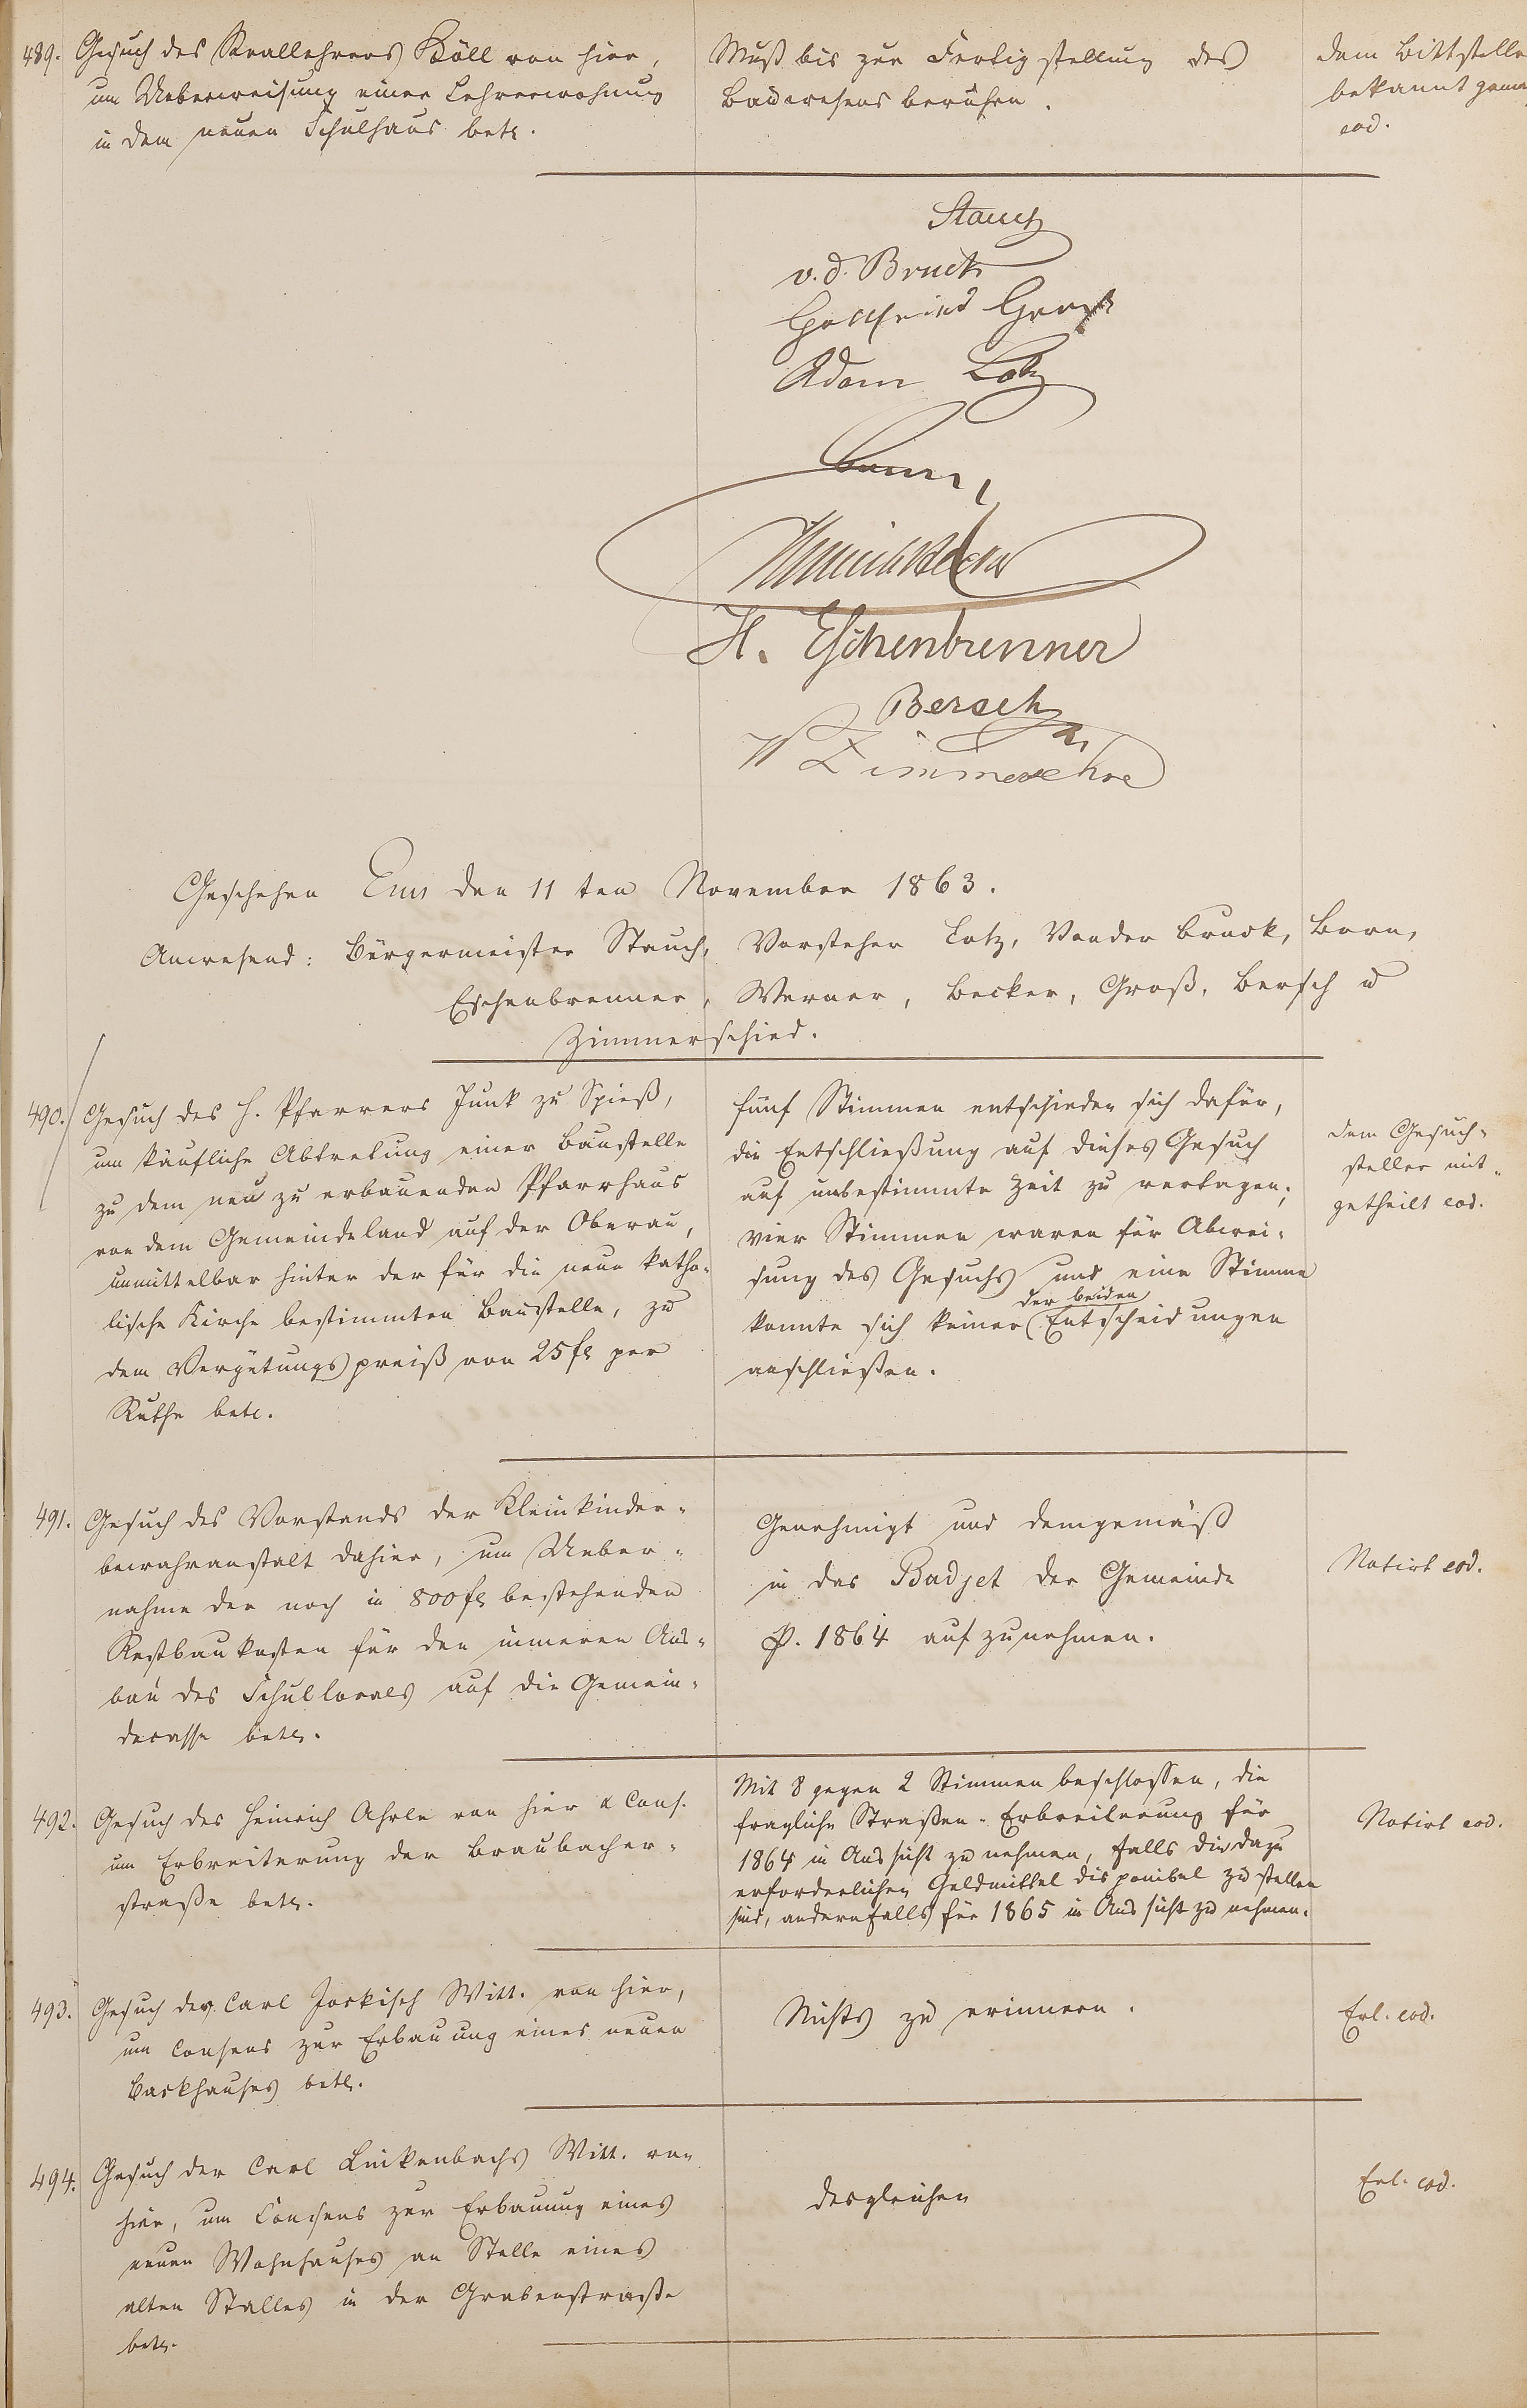 489. Gesuch des Reallehrers Köll von hier,
um Ueberweisung einer Lehrerwohnung
in dem neuen Schulhaus betr.
Muß bis zur Fertigstellung des
Bauwesens beruhen.
dem Bittstelle
bekannt gema
eod.
Stauch
v. d. Bruck
Gottfried Groß
Adam Lotz
Born,
H. Eschenbrenner
Bersch
W Zimmerschied
Geschehen Ems den 11ten November 1863.
Anwesend: Bürgermeister Stauch, Vorsteher Lotz, Vonder Bruck, Born,
Eschenbrenner, Werner, Becker, Groß, Bersch u
Zimmerschied.
490. Gesuch des H. Pfarrers Junk zu Spieß,
um käufliche Abtretung einer Baustelle
zu dem neu zu erbauenden Pfarrhaus
von dem Gemeindeland auf der Oberau,
unmittelbar hinter der für die neue katho-
lische Kirche bestimmten Baustelle, zu
dem Vergütungspreiß von 25 fl per
Ruthe betr.
fünf Stimmen entschieden sich dafür,
die Entschließung auf dieses Gesuch
auf unbestimmte Zeit zu vertagen;
vier Stimmen waren für Abwei-
sung des Gesuchs und eine Stimme
der beiden
konnte sich keiner Entscheidungen
anschließen.
dem Gesuch-
steller mit-
getheilt eod.
491. Gesuch des Vorstands der Kleinkinder-
bewahranstalt dahier, um Ueber-
nahme der noch in 800 fl bestehenden
Restbaukosten für den inneren Aus-
bau des Schullocals auf die Gemein-
decasse betr.
Genehmigt und demgemäß
in das Budjet der Gemeinde
p. 1864 aufzunehmen.
Notirt eod.
492. Gesuch des Heinrich Ahrle von hier & Cons.
um Erbreiterung der Braubacher-
straße betr.
Mit 8 gegen 2 Stimmen beschlossen, die
fragliche Straßen-Erbreiterung für
1864 in Aussicht zu nehmen, falls die dazu
erforderlichen Geldmittel disponibel zu stellen
sind, andernfalls für 1865 in Aussicht zu nehmen.
Notirt eod.
493. Gesuch der Carl Jockisch Witt. von hier,
um Consens zur Erbauung eines neuen
Backhauses betr.
Nichts zu erinnern.
Erl. eod.
494. Gesuch der Carl Linkenbachs Witt. von
hier, um Consens zur Erbauung eines
neuen Wohnhauses an Stelle eines
alten Stalles in der Grabenstraße
betr.
desgleichen
Erl. eod.